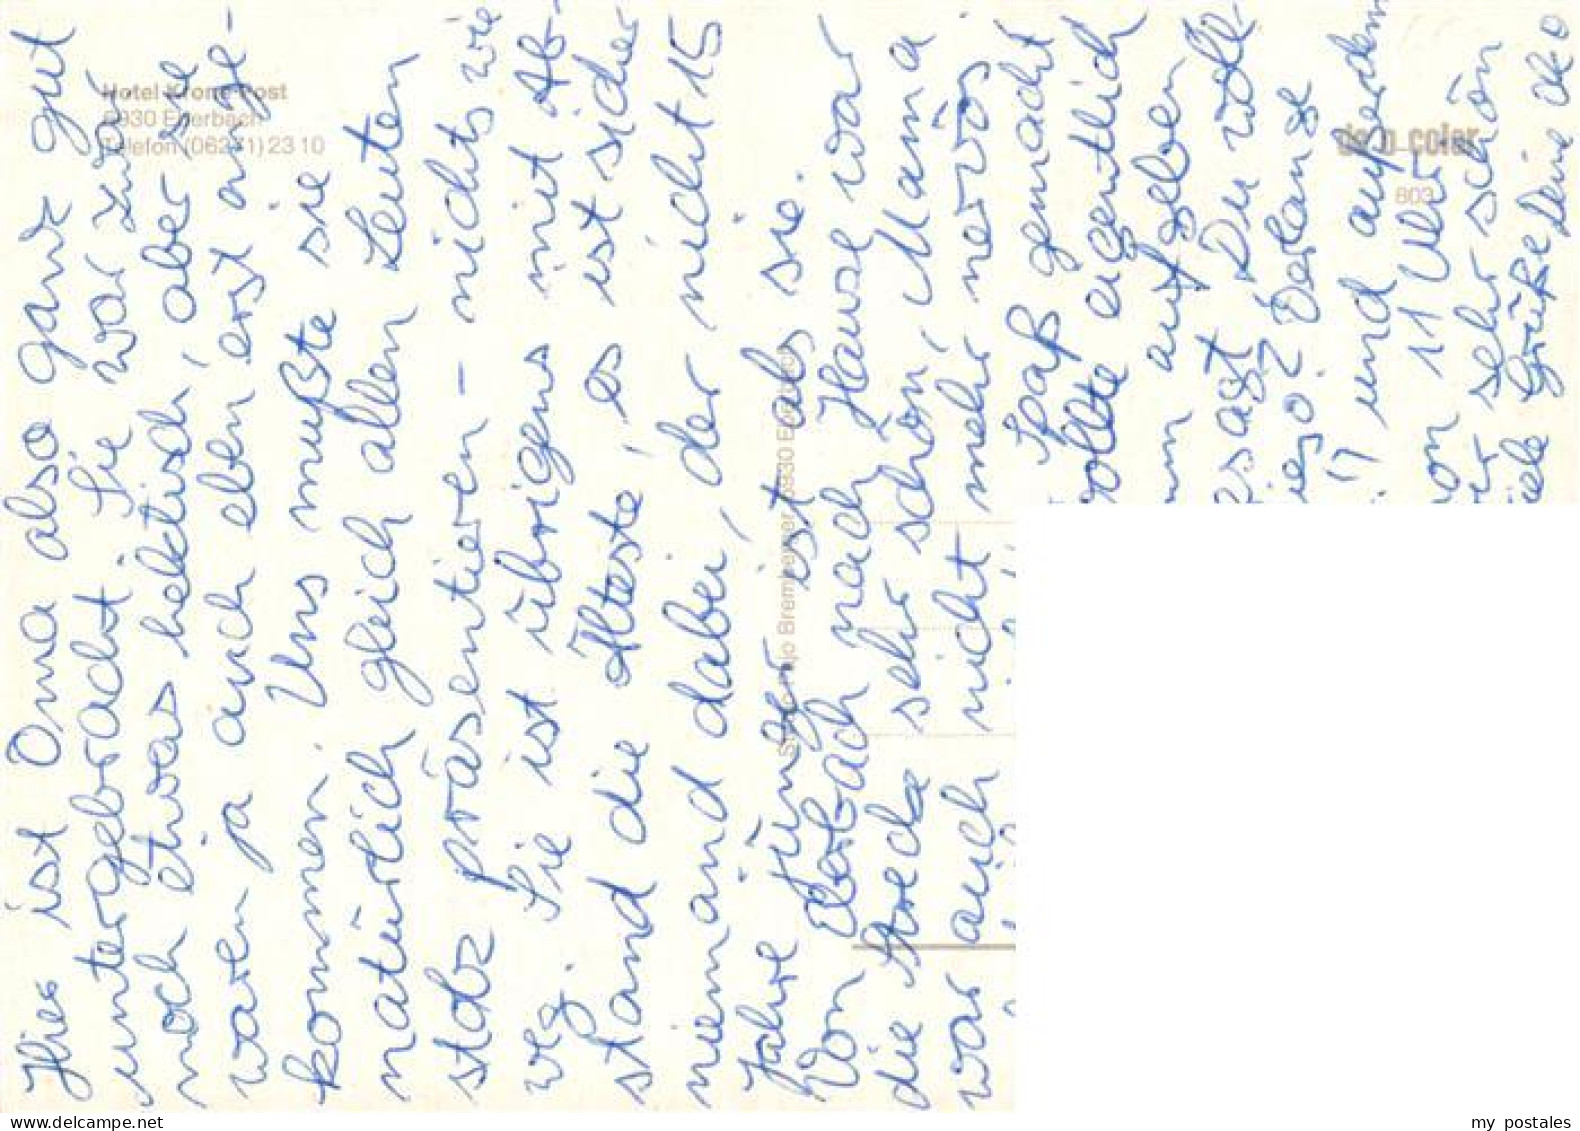 Hotel Krone-Post
6930 Eberbach
Telefon (06271) 23 10
803
Hier ist Oma also ganz gut
untergebracht. Sie war zwar
noch etwas hektisch, aber wir
waren ja auch eben erst ange-
kommen. Uns mußte sie
natürlich gleich allen Leuten
stolz präsentieren - nichts wie
weg. Sie ist übrigens mit Ab-
stand die Älteste, es ist sicher
niemand dabei, der nicht 15
Jahre jünger ist als sie.
Von Eberbach nach Hause war
die Strecke sehr schön, Mama
war auch nicht mehr nervös
Spaß gemacht
wollte eigentlich
aufgeben
sagst Du woll-
Verlange
und außerdem
von 11 Uhr
sehr schön
viele Grüße Deine
my postales